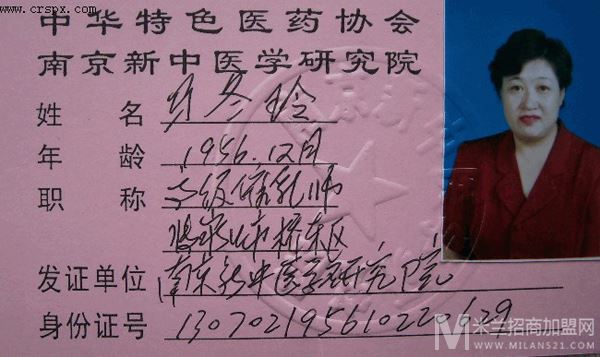 www.crspx.com
中华特色医药协会
南京新中医学研究院
姓 名 冬玲
年 龄 1956.12月
职 称 高级催乳师
张家口市桥东区
发证单位 南京新中医学研究院
身份证号 130702195610220629
米兰招商加盟网
WWW.MILAN521.COM